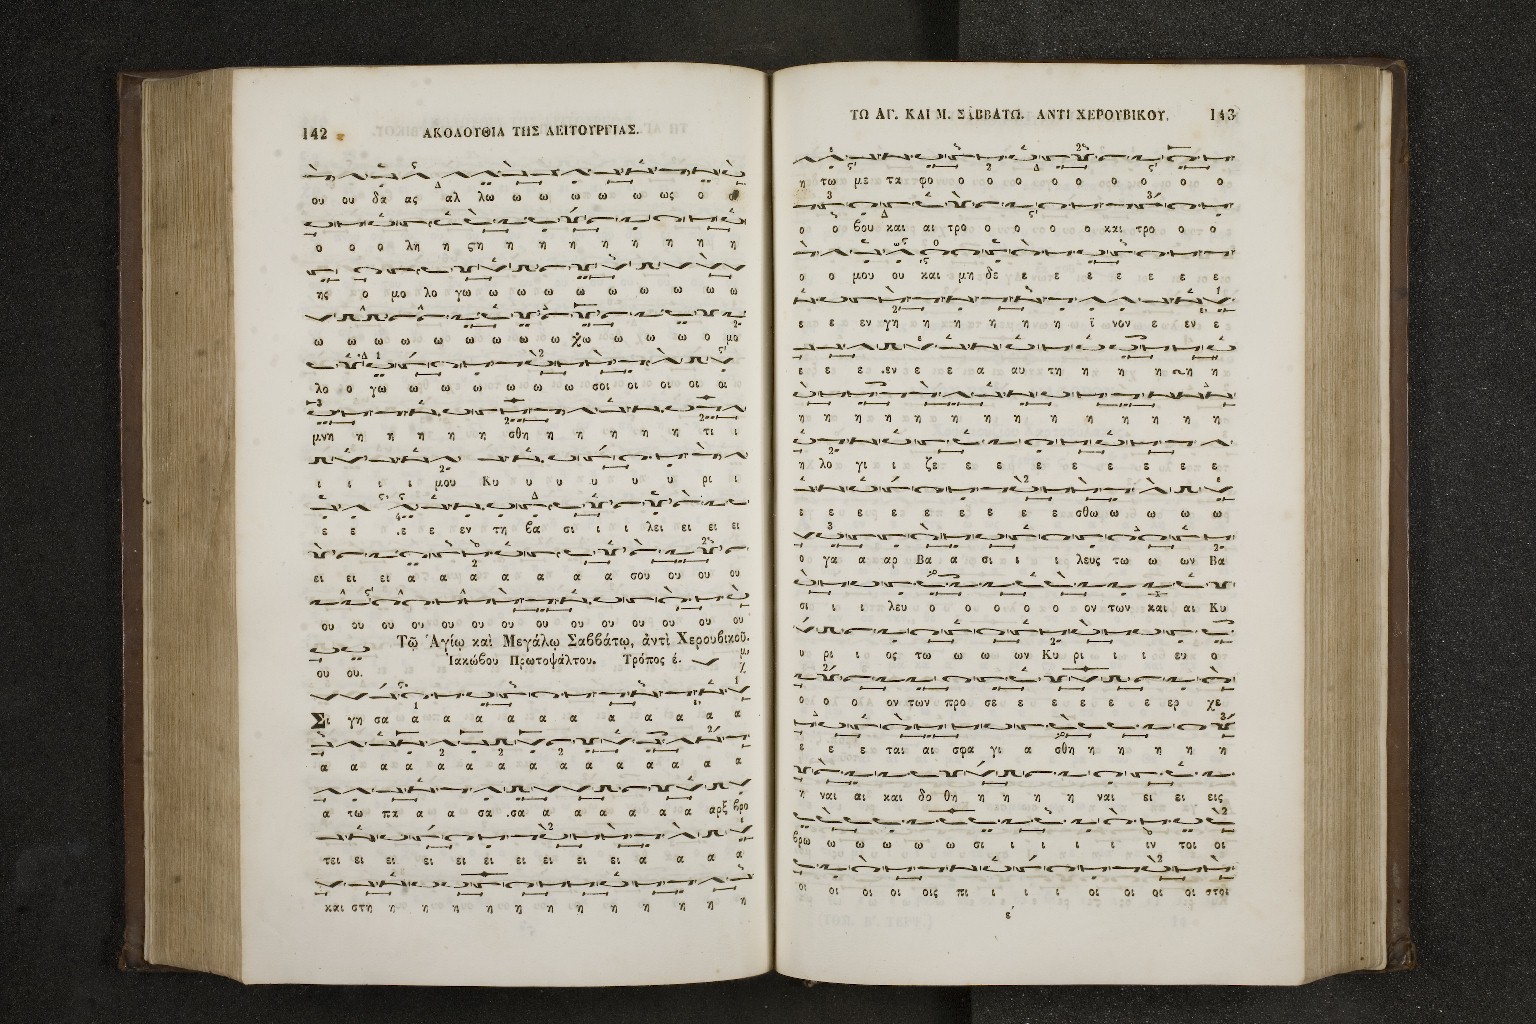 142
ΑΚΟΛΟΥΘΙΑ ΤΗΣ ΛΕΙΤΟΥΡΓΙΑΣ.
ου ου δα ας αλ λω ω ω ω ω ω ως ο
ο ο ο λη η ςη η η η η η η η
ης ο μο λο γω ω ω ω ω ω ω ω ω ω
ω ω ω ω ω ω ω ω ω χω ω ω ω ο μο
λο ο γω ω ω ω ω ω ω σοι οι οι οι οι
μνη η η η η η σθη η η η η η τι ι
ι ι ι ι μου Κυ υ υ υ υ υ ρι ι
ε ε ε ε εν τη βα σι ι ι λει ει ει ει
ει ει ει α α α α α α α σου ου ου ου
ου ου ου ου ου ου ου ου ου ου ου ου ου ου
Τῷ Ἁγίῳ καὶ Μεγάλῳ Σαββάτῳ, ἀντὶ Χερουβικοῦ.
Ἰακώβου Πρωτοψάλτου. Τρόπος έ.
ου ου.
Σι γη σα α α α α α α α α α α α
α α α α α α α α α α α α α α α
α τω πα α α σα σα α α α α α α αρξ βρο
τει ει ει ει ει ει ει ει ει ει α α α α
και στη η η η η η η η η η η η η
ΤΩ ΑΓ. ΚΑΙ Μ. ΣΑΒΒΑΤΩ. ΑΝΤΙ ΧΕΡΟΥΒΙΚΟΥ.
143
η τω με τα φο ο ο ο ο ο ο ο ο ο
ο ο βου και αι τρο ο ο ο ο και τρο ο ο
ο ο μου ου και μη δε ε ε ε ε ε ε ε
ε ε εν γη η η η η η ϊ νον ε εν ε
ε ε ε εν ε ε α αυ τη η η η η η
η η η η η η η η η η η η η
η λο γι ι ζε ε ε ε ε ε ε ε ε
ε ε ε ε ε ε ε ε ε σθω ω ω ω ω
ο γα α αρ Βα α σι ι ι λευς τω ω ων Βα
σι ι ι λευ ο ο ο ο ο ο ον των και αι Κυ
υ ρι ι ος τω ω ω ων Κυ ρι ι ι ευ ο
ο ο ο ον των προ σε ε ε ε ε ε ερ χε
ε ε ε ται αι σφα γι α σθη η η η η η
η ναι αι και δο θη η η η η ναι ει ει εις
βρω ω ω ω ω ω σι ι ι ι ι ιν τοι οι
οι οι οι οι οις πι ι ι ι οι οι οι οι στοι
έ